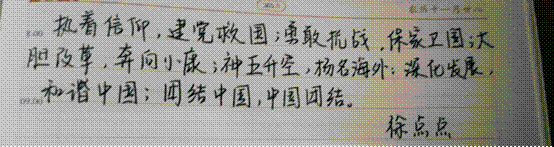 农历十一月廿八
8:00 执着信仰，建党救国；勇敢抗战，保家卫国；大
胆改革，奔向小康；神五升空，扬名海外；深化发展，
09:00 和谐中国；团结中国，中国团结。
徐点点